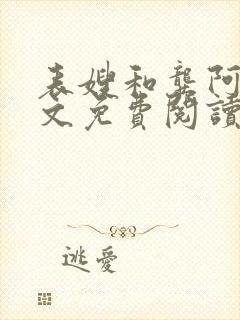 表嫂和龔阿
文免費閱讀
逃愛